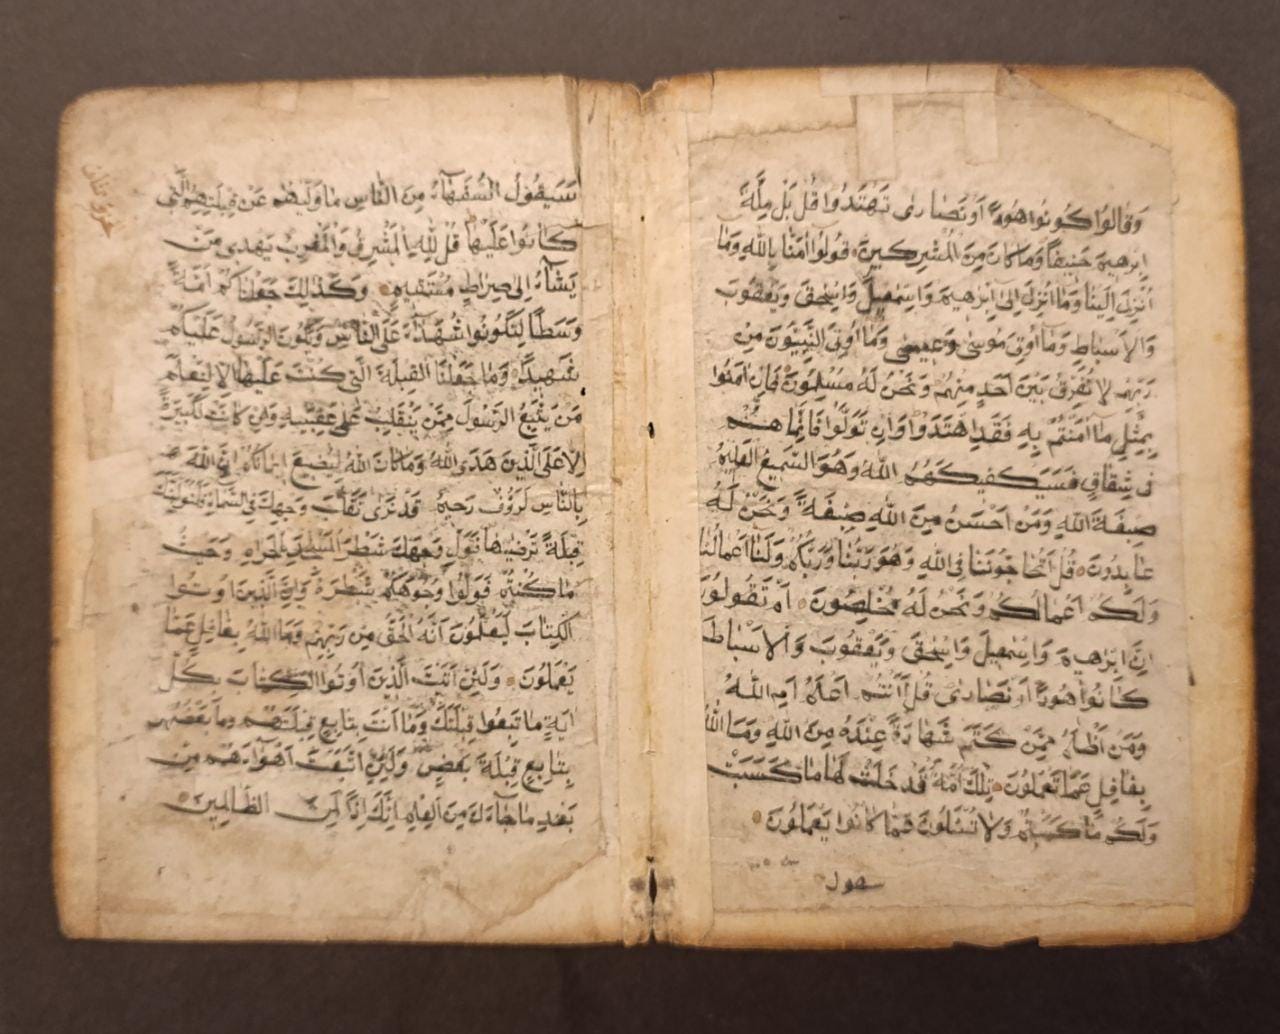 وَقَالُوا كُونُوا هُودًا أَوْ نَصَارَى تَهْتَدُوا قُلْ بَلْ مِلَّةَ
اِبْرٰهِيمَ حَنِيفًا وَمَا كَانَ مِنَ الْمُشْرِكِينَ قُولُوا اٰمَنَّا بِاللهِ وَمَا
اُنْزِلَ اِلَيْنَا وَمَا اُنْزِلَ اِلَى اِبْرٰهِيمَ وَاِسْمٰعِيلَ وَاِسْحٰقَ وَيَعْقُوبَ
وَالْاَسْبَاطِ وَمَا اُوتِىَ مُوسٰى وَعِيسٰى وَمَا اُوتِىَ النَّبِيُّونَ مِنْ
رَبِّهِمْ لَا نُفَرِّقُ بَيْنَ اَحَدٍ مِنْهُمْ وَنَحْنُ لَهُ مُسْلِمُونَ فَاِنْ اٰمَنُوا
بِمِثْلِ مَا اٰمَنْتُمْ بِهِ فَقَدِ اهْتَدَوْا وَاِنْ تَوَلَّوْا فَاِنَّمَا هُمْ
فِى شِقَاقٍ فَسَيَكْفِيكَهُمُ اللهُ وَهُوَ السَّمِيعُ الْعَلِيمُ
صِبْغَةَ اللهِ وَمَنْ اَحْسَنُ مِنَ اللهِ صِبْغَةً وَنَحْنُ لَهُ
عَابِدُونَ قُلْ اَتُحَاجُّونَنَا فِى اللهِ وَهُوَ رَبُّنَا وَرَبُّكُمْ وَلَنَا اَعْمَالُنَا
وَلَكُمْ اَعْمَالُكُمْ وَنَحْنُ لَهُ مُخْلِصُونَ اَمْ تَقُولُونَ
اِنَّ اِبْرٰهِيمَ وَاِسْمٰعِيلَ وَاِسْحٰقَ وَيَعْقُوبَ وَالْاَسْبَاطَ
كَانُوا هُودًا اَوْ نَصَارٰى قُلْ ءَاَنْتُمْ اَعْلَمُ اَمِ اللهُ
وَمَنْ اَظْلَمُ مِمَّنْ كَتَمَ شَهَادَةً عِنْدَهُ مِنَ اللهِ وَمَا اللهُ
بِغَافِلٍ عَمَّا تَعْمَلُونَ تِلْكَ اُمَّةٌ قَدْ خَلَتْ لَهَا مَا كَسَبَتْ
وَلَكُمْ مَا كَسَبْتُمْ وَلَا تُسْئَلُونَ عَمَّا كَانُوا يَعْمَلُونَ
سيقول
سَيَقُولُ السُّفَهَاءُ مِنَ النَّاسِ مَا وَلّٰيهُمْ عَنْ قِبْلَتِهِمُ الَّتِى
كَانُوا عَلَيْهَا قُلْ لِلّٰهِ الْمَشْرِقُ وَالْمَغْرِبُ يَهْدِى مَنْ
يَشَاءُ اِلٰى صِرَاطٍ مُسْتَقِيمٍ وَكَذٰلِكَ جَعَلْنَاكُمْ اُمَّةً
وَسَطًا لِتَكُونُوا شُهَدَاءَ عَلَى النَّاسِ وَيَكُونَ الرَّسُولُ عَلَيْكُمْ
شَهِيدًا وَمَا جَعَلْنَا الْقِبْلَةَ الَّتِى كُنْتَ عَلَيْهَا اِلَّا لِنَعْلَمَ
مَنْ يَتَّبِعُ الرَّسُولَ مِمَّنْ يَنْقَلِبُ عَلٰى عَقِبَيْهِ وَاِنْ كَانَتْ لَكَبِيرَةً
اِلَّا عَلَى الَّذِينَ هَدَى اللهُ وَمَا كَانَ اللهُ لِيُضِيعَ اِيمَانَكُمْ اِنَّ اللهَ
بِالنَّاسِ لَرَؤُفٌ رَحِيمٌ قَدْ نَرٰى تَقَلُّبَ وَجْهِكَ فِى السَّمَاءِ فَلَنُوَلِّيَنَّكَ
قِبْلَةً تَرْضٰيهَا فَوَلِّ وَجْهَكَ شَطْرَ الْمَسْجِدِ الْحَرَامِ وَحَيْثُ
مَا كُنْتُمْ فَوَلُّوا وُجُوهَكُمْ شَطْرَهُ وَاِنَّ الَّذِينَ اُوتُوا
الْكِتَابَ لَيَعْلَمُونَ اَنَّهُ الْحَقُّ مِنْ رَبِّهِمْ وَمَا اللهُ بِغَافِلٍ عَمَّا
يَعْمَلُونَ وَلَئِنْ اَتَيْتَ الَّذِينَ اُوتُوا الْكِتَابَ بِكُلِّ
اٰيَةٍ مَا تَبِعُوا قِبْلَتَكَ وَمَا اَنْتَ بِتَابِعٍ قِبْلَتَهُمْ وَمَا بَعْضُهُمْ
بِتَابِعٍ قِبْلَةَ بَعْضٍ وَلَئِنِ اتَّبَعْتَ اَهْوَاءَهُمْ مِنْ
بَعْدِ مَا جَاءَكَ مِنَ الْعِلْمِ اِنَّكَ اِذًا لَمِنَ الظَّالِمِينَ